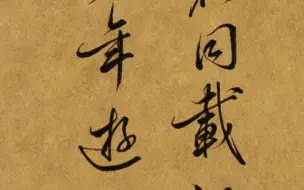 同載
年遊